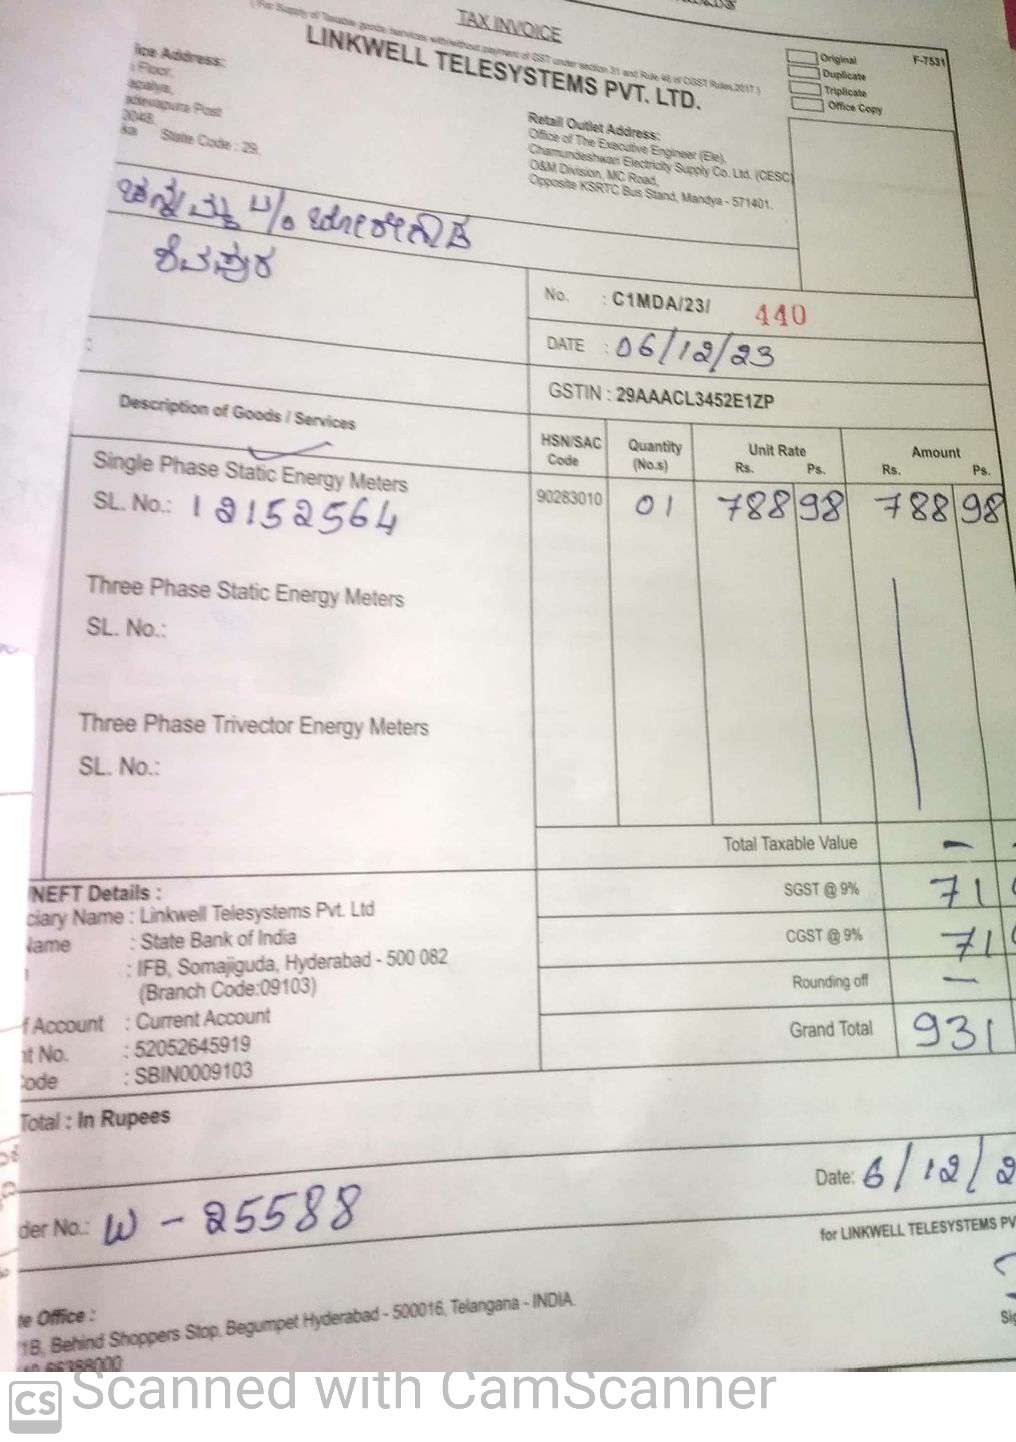 TAX INVOICE
(For Supply of Taxable goods /services with/without payment of GST under section 31 and Rule 46 of CGST Rules,2017.)
LINKWELL TELESYSTEMS PVT. LTD.
Original
Duplicate
Triplicate
Office Copy
F-7531
ice Address:
Floor,
apalya,
adevapura Post
State Code : 29.
Retail Outlet Address:
Office of The Executive Engineer (Ele),
Chamundeshwari Electricity Supply Co. Ltd. (CESC)
O&M Division, MC Road,
Opposite KSRTC Bus Stand, Mandya - 571401.
ಶಿವಪುರ
No. : C1MDA/23/ 440
DATE : 06/12/23
GSTIN : 29AAACL3452E1ZP
Description of Goods / Services
HSN/SAC Code
Quantity (No.s)
Unit Rate Rs. Ps.
Amount Rs. Ps.
Single Phase Static Energy Meters
SL. No.: 12152564
90283010 01 788 98 788 98
Three Phase Static Energy Meters
SL. No.:
Three Phase Trivector Energy Meters
SL. No.:
Total Taxable Value -
SGST @ 9% 71
CGST @ 9% 71
Rounding off -
Grand Total 931
/NEFT Details :
ciary Name : Linkwell Telesystems Pvt. Ltd
Name : State Bank of India
: IFB, Somajiguda, Hyderabad - 500 082
(Branch Code:09103)
f Account : Current Account
nt No. : 52052645919
ode : SBIN0009103
Total : In Rupees
Date: 6/12/2
der No.: W - 25588
for LINKWELL TELESYSTEMS PV
te Office :
1B, Behind Shoppers Stop, Begumpet Hyderabad - 500016, Telangana - INDIA.
66388000
CS Scanned with CamScanner